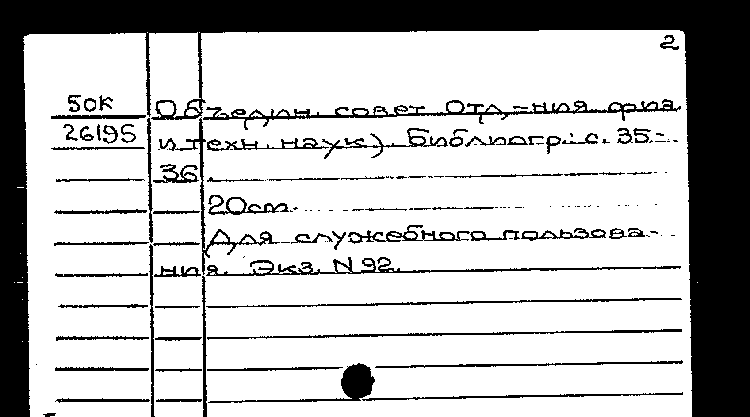 2
50К Объедин. совет Отд-ния физ.
26195 и техн. наук). Библиогр.: с. 35-
36.
20cm.
Для служебного пользова-
ния. Экз. N 92.